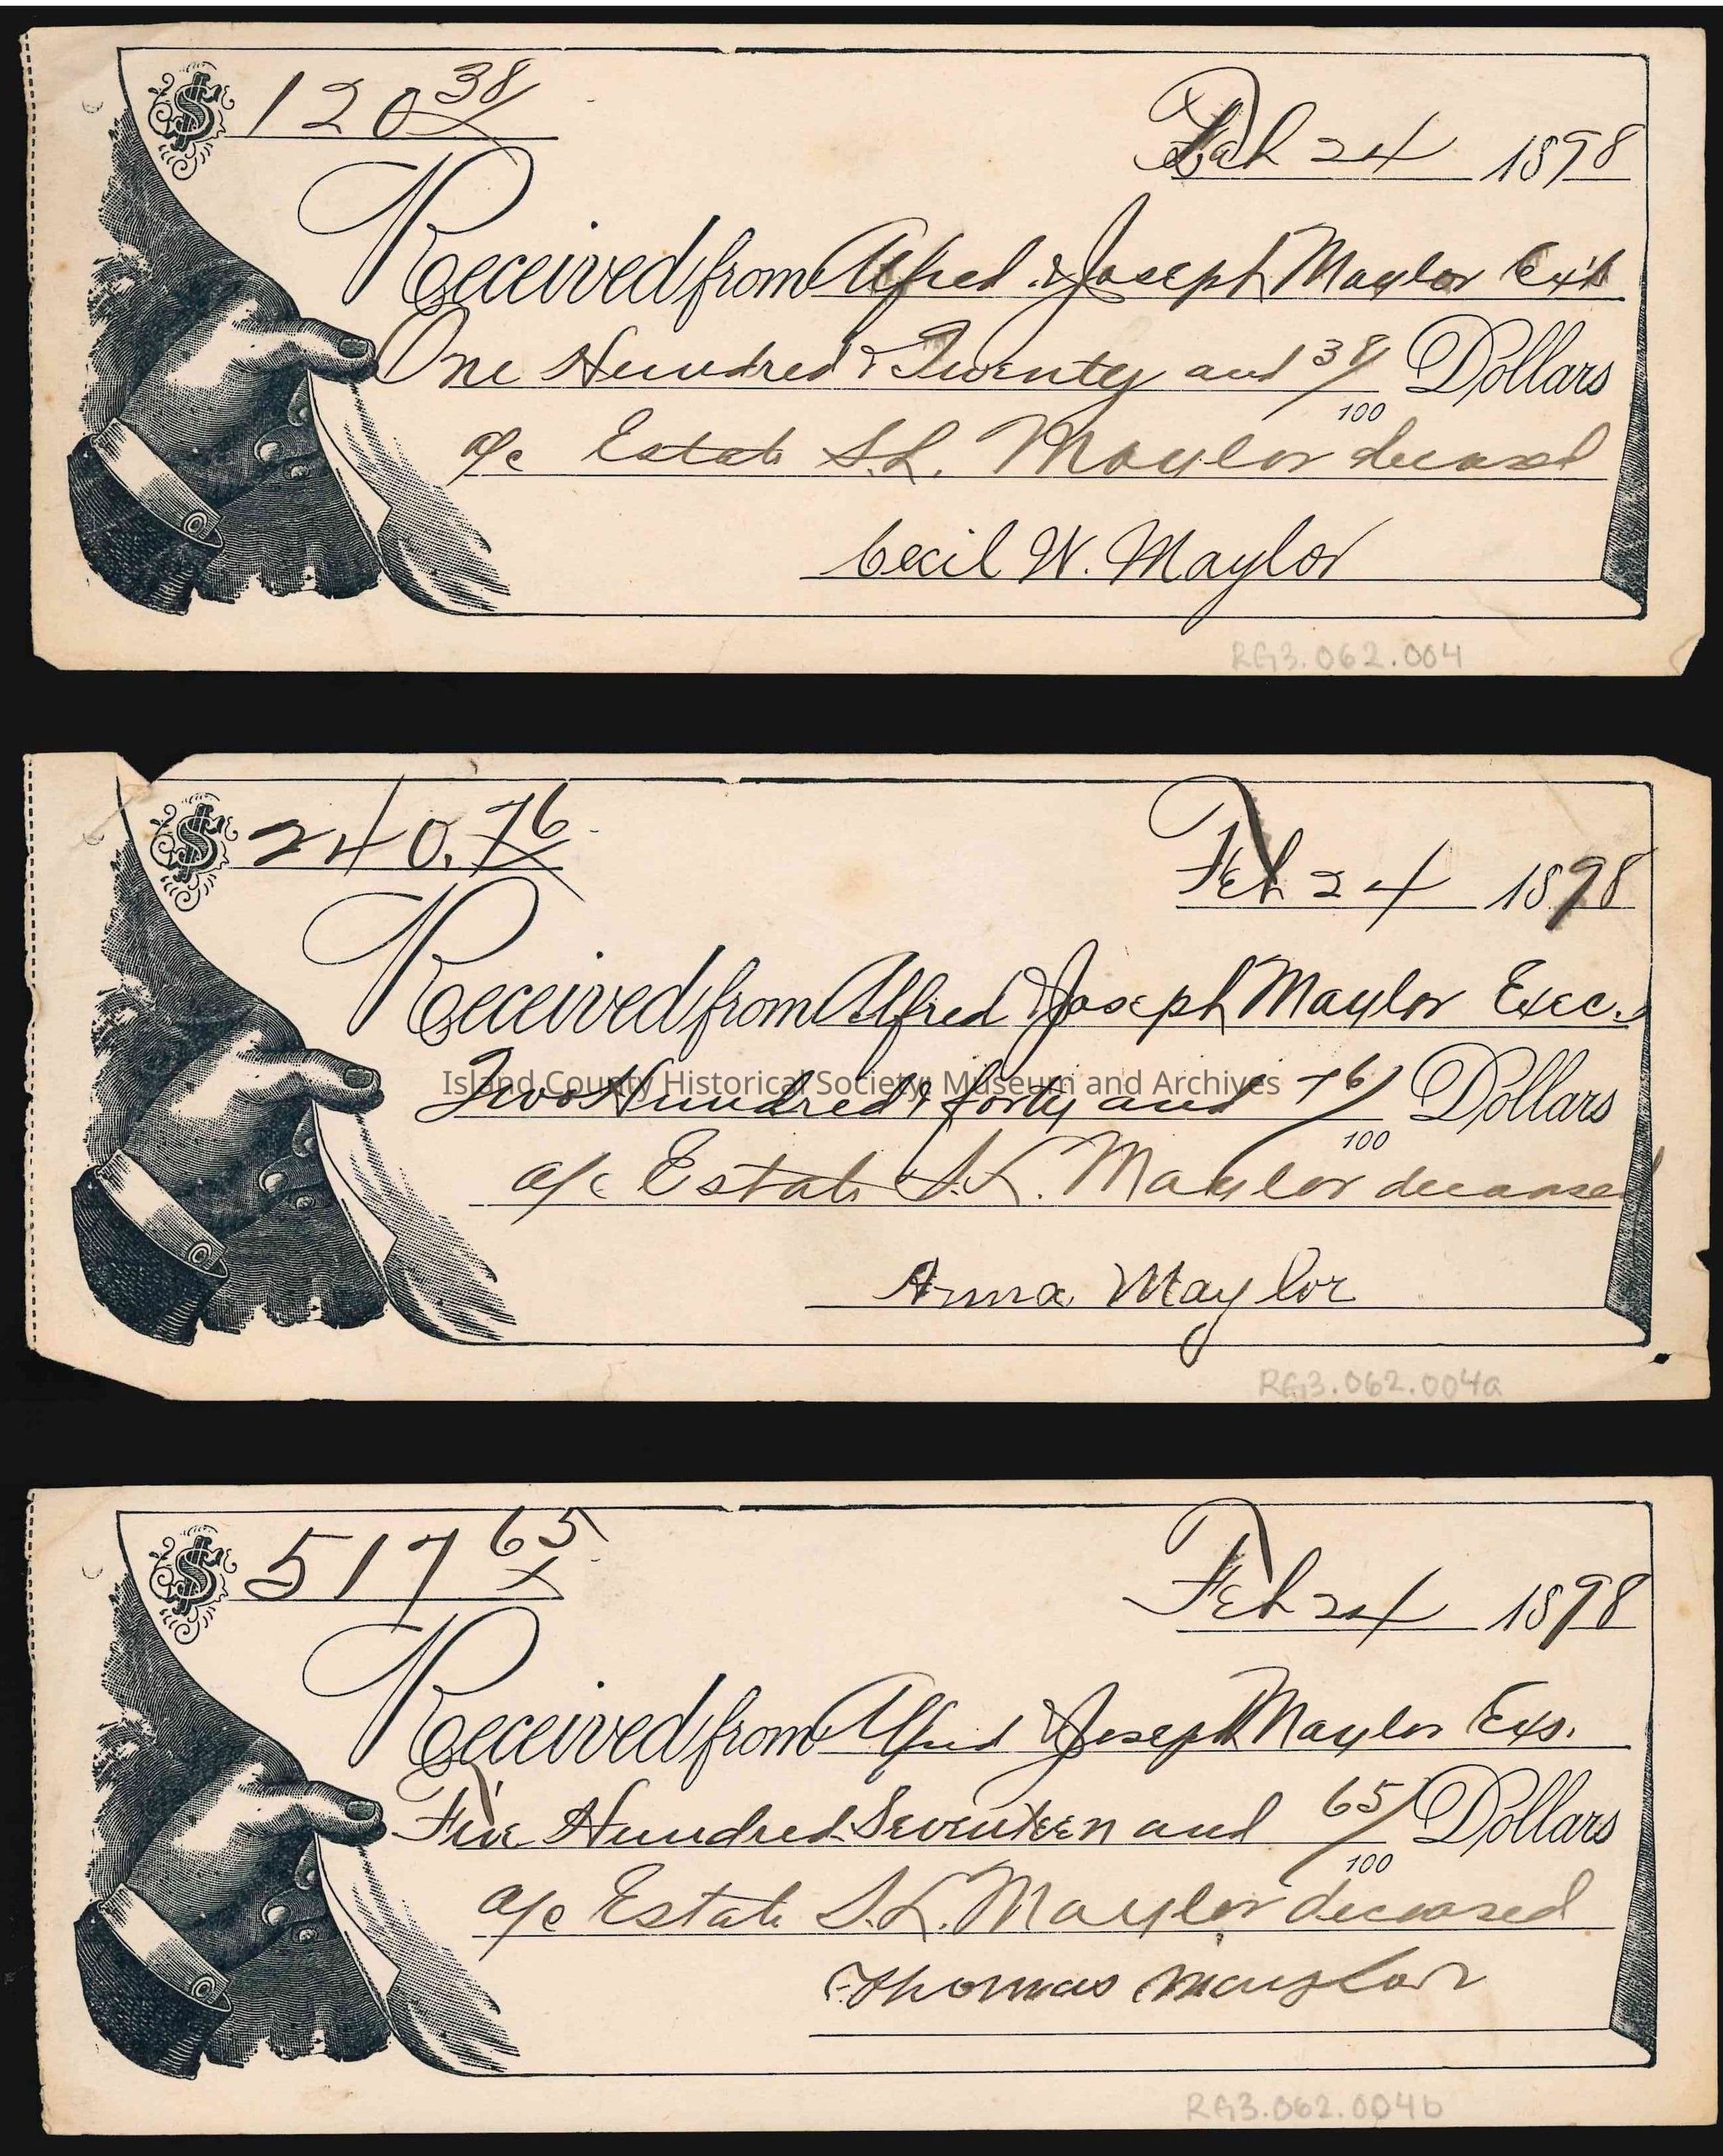 $ 120 38/x
Feb 24 1898
Received from Alfred & Joseph Maylor Exs
One Hundred & Twenty and 38/100 Dollars
a/c Estate S.L. Maylor deceased
Cecil W. Maylor
RG3.062.004
$ 240.76/x
Feb 24 1898
Received from Alfred & Joseph Maylor Exec.
Two Hundred & forty and 76/100 Dollars
Island County Historical Society, Museum and Archives
a/c Estate S.L. Maylor deceased
Anna Maylor
RG3.062.004a
$ 517 65/x
Feb 24 1898
Received from Alfred & Joseph Maylor Exs.
Five Hundred Seventeen and 65/100 Dollars
a/c Estate S.L. Maylor deceased
Thomas Maylor
RG3.062.004b